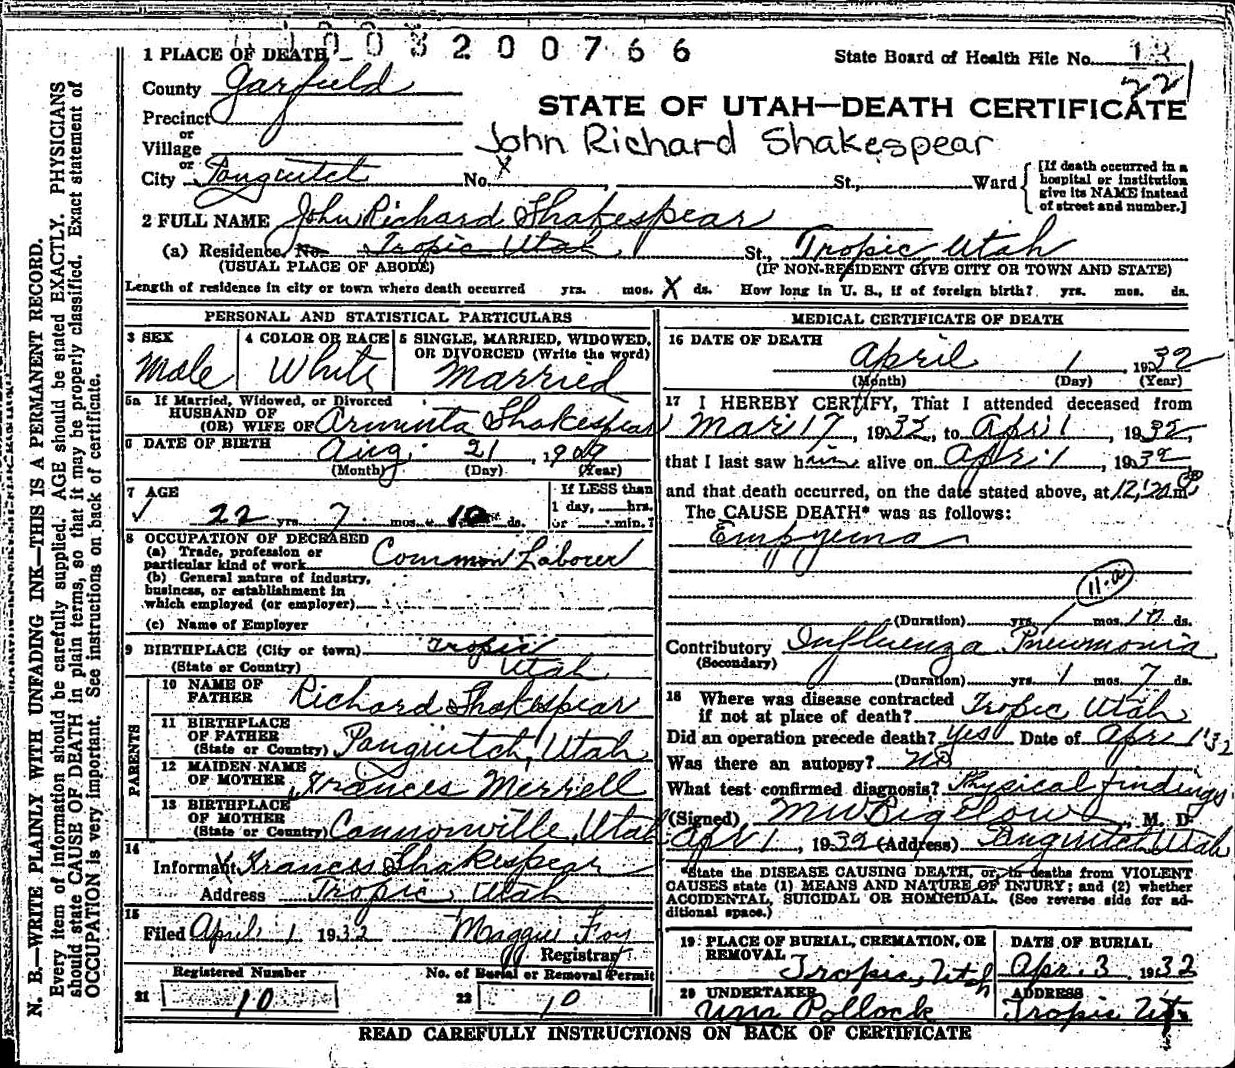 1003200766
1 PLACE OF DEATH
State Board of Health File No. 13
221
County Garfield
STATE OF UTAH—DEATH CERTIFICATE
Precinct
or
Village
John Richard Shakespear
or
City Panguitch No. X St., Ward
[If death occurred in a
hospital or institution
give its NAME instead
of street and number.]
2 FULL NAME John Richard Shakespear
(a) Residence. No. Tropic Utah St., Tropic, Utah
(USUAL PLACE OF ABODE) (IF NON-RESIDENT GIVE CITY OR TOWN AND STATE)
Length of residence in city or town where death occurred yrs. mos. X ds. How long in U. S., if of foreign birth? yrs. mos. ds.
PERSONAL AND STATISTICAL PARTICULARS
3 SEX
Male
4 COLOR OR RACE
White
5 SINGLE, MARRIED, WIDOWED,
OR DIVORCED (Write the word)
Married
5a If Married, Widowed, or Divorced
HUSBAND OF
(OR) WIFE OF Shakespear
6 DATE OF BIRTH Aug. 21, 1909
(Month) (Day) (Year)
7 AGE
22 yrs. 7 mos. 10 ds.
If LESS than
1 day, hrs.
or min.?
8 OCCUPATION OF DECEASED
(a) Trade, profession or
particular kind of work Common Laborer
(b) General nature of industry,
business, or establishment in
which employed (or employer)
(c) Name of Employer
9 BIRTHPLACE (City or town) Tropic
(State or Country) Utah
PARENTS
10 NAME OF
FATHER Richard Shakespear
11 BIRTHPLACE
OF FATHER
(State or Country) Panguitch, Utah
12 MAIDEN NAME
OF MOTHER Frances Merrell
13 BIRTHPLACE
OF MOTHER
(State or Country) Cannonville, Utah
14
Informant Frances Shakespear
Address Tropic, Utah
15
Filed April 1 1932 Maggie Foy
Registrar
Registered Number
21 10
No. of Burial or Removal Permit
22 10
MEDICAL CERTIFICATE OF DEATH
16 DATE OF DEATH
April 1, 1932
(Month) (Day) (Year)
17 I HEREBY CERTIFY, That I attended deceased from
Mar 17, 1932, to Apr 1, 1932,
that I last saw him alive on Apr. 1, 1932
and that death occurred, on the date stated above, at 12:20 P m.
The CAUSE DEATH* was as follows:
Empyema
11-a
(Duration) yrs. mos. 10 ds.
Contributory Influenza Pneumonia
(Secondary)
(Duration) yrs. 1 mos. 7 ds.
18 Where was disease contracted
if not at place of death? Tropic Utah
Did an operation precede death? Yes Date of Apr 1 '32
Was there an autopsy? No
What test confirmed diagnosis? Physical findings
(Signed) M W Bigelow, M. D.
Apr 1, 1932 (Address) Panguitch, Utah
*State the DISEASE CAUSING DEATH, or, in deaths from VIOLENT
CAUSES state (1) MEANS AND NATURE OF INJURY; and (2) whether
ACCIDENTAL, SUICIDAL OR HOMICIDAL. (See reverse side for ad-
ditional space.)
19 PLACE OF BURIAL, CREMATION, OR
REMOVAL Tropic, Utah
DATE OF BURIAL
Apr. 3 1932
20 UNDERTAKER
Pollock
ADDRESS
Tropic Ut.
READ CAREFULLY INSTRUCTIONS ON BACK OF CERTIFICATE
N. B.—WRITE PLAINLY WITH UNFADING INK—THIS IS A PERMANENT RECORD.
Every item of information should be carefully supplied. AGE should be stated EXACTLY. PHYSICIANS
should state CAUSE OF DEATH in plain terms, so that it may be properly classified. Exact statement of
OCCUPATION is very important. See instructions on back of certificate.